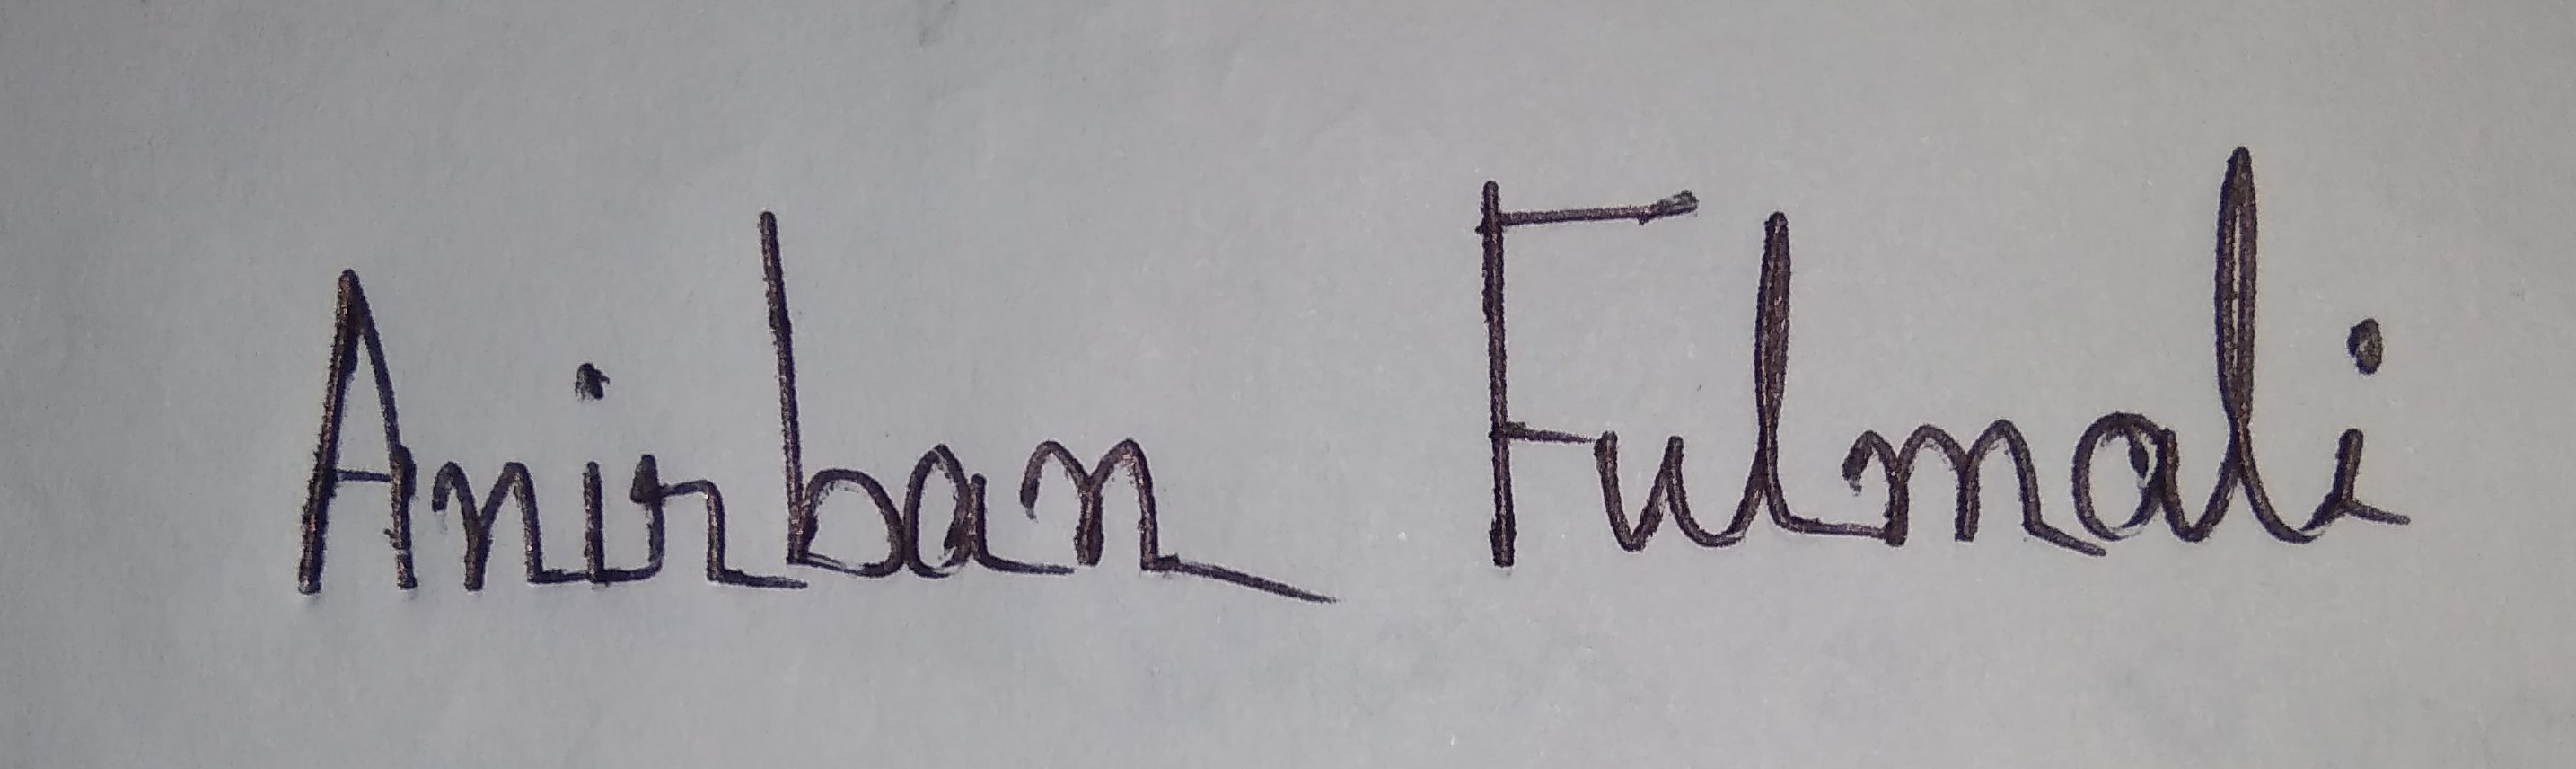 Anirban Fulmali